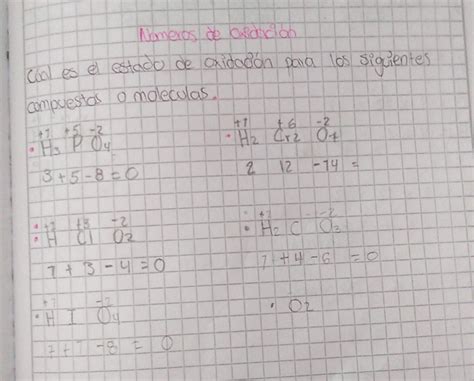 Números de oxidación
Cúal es el estado de oxidación para los siguientes
compuestos o moleculas.
+1 +5 -2
• H3 P O4
3 + 5 - 8 = 0
+1 +6 -2
• H2 Cr2 O7
2 12 -14 =
+1 +3 -2
• H Cl O2
1 + 3 - 4 = 0
+1 -2
• H2 C O3
+ 4 - 6 = 0
+1 -2
• H I O4
1 + 7 - 8 = 0
• O2